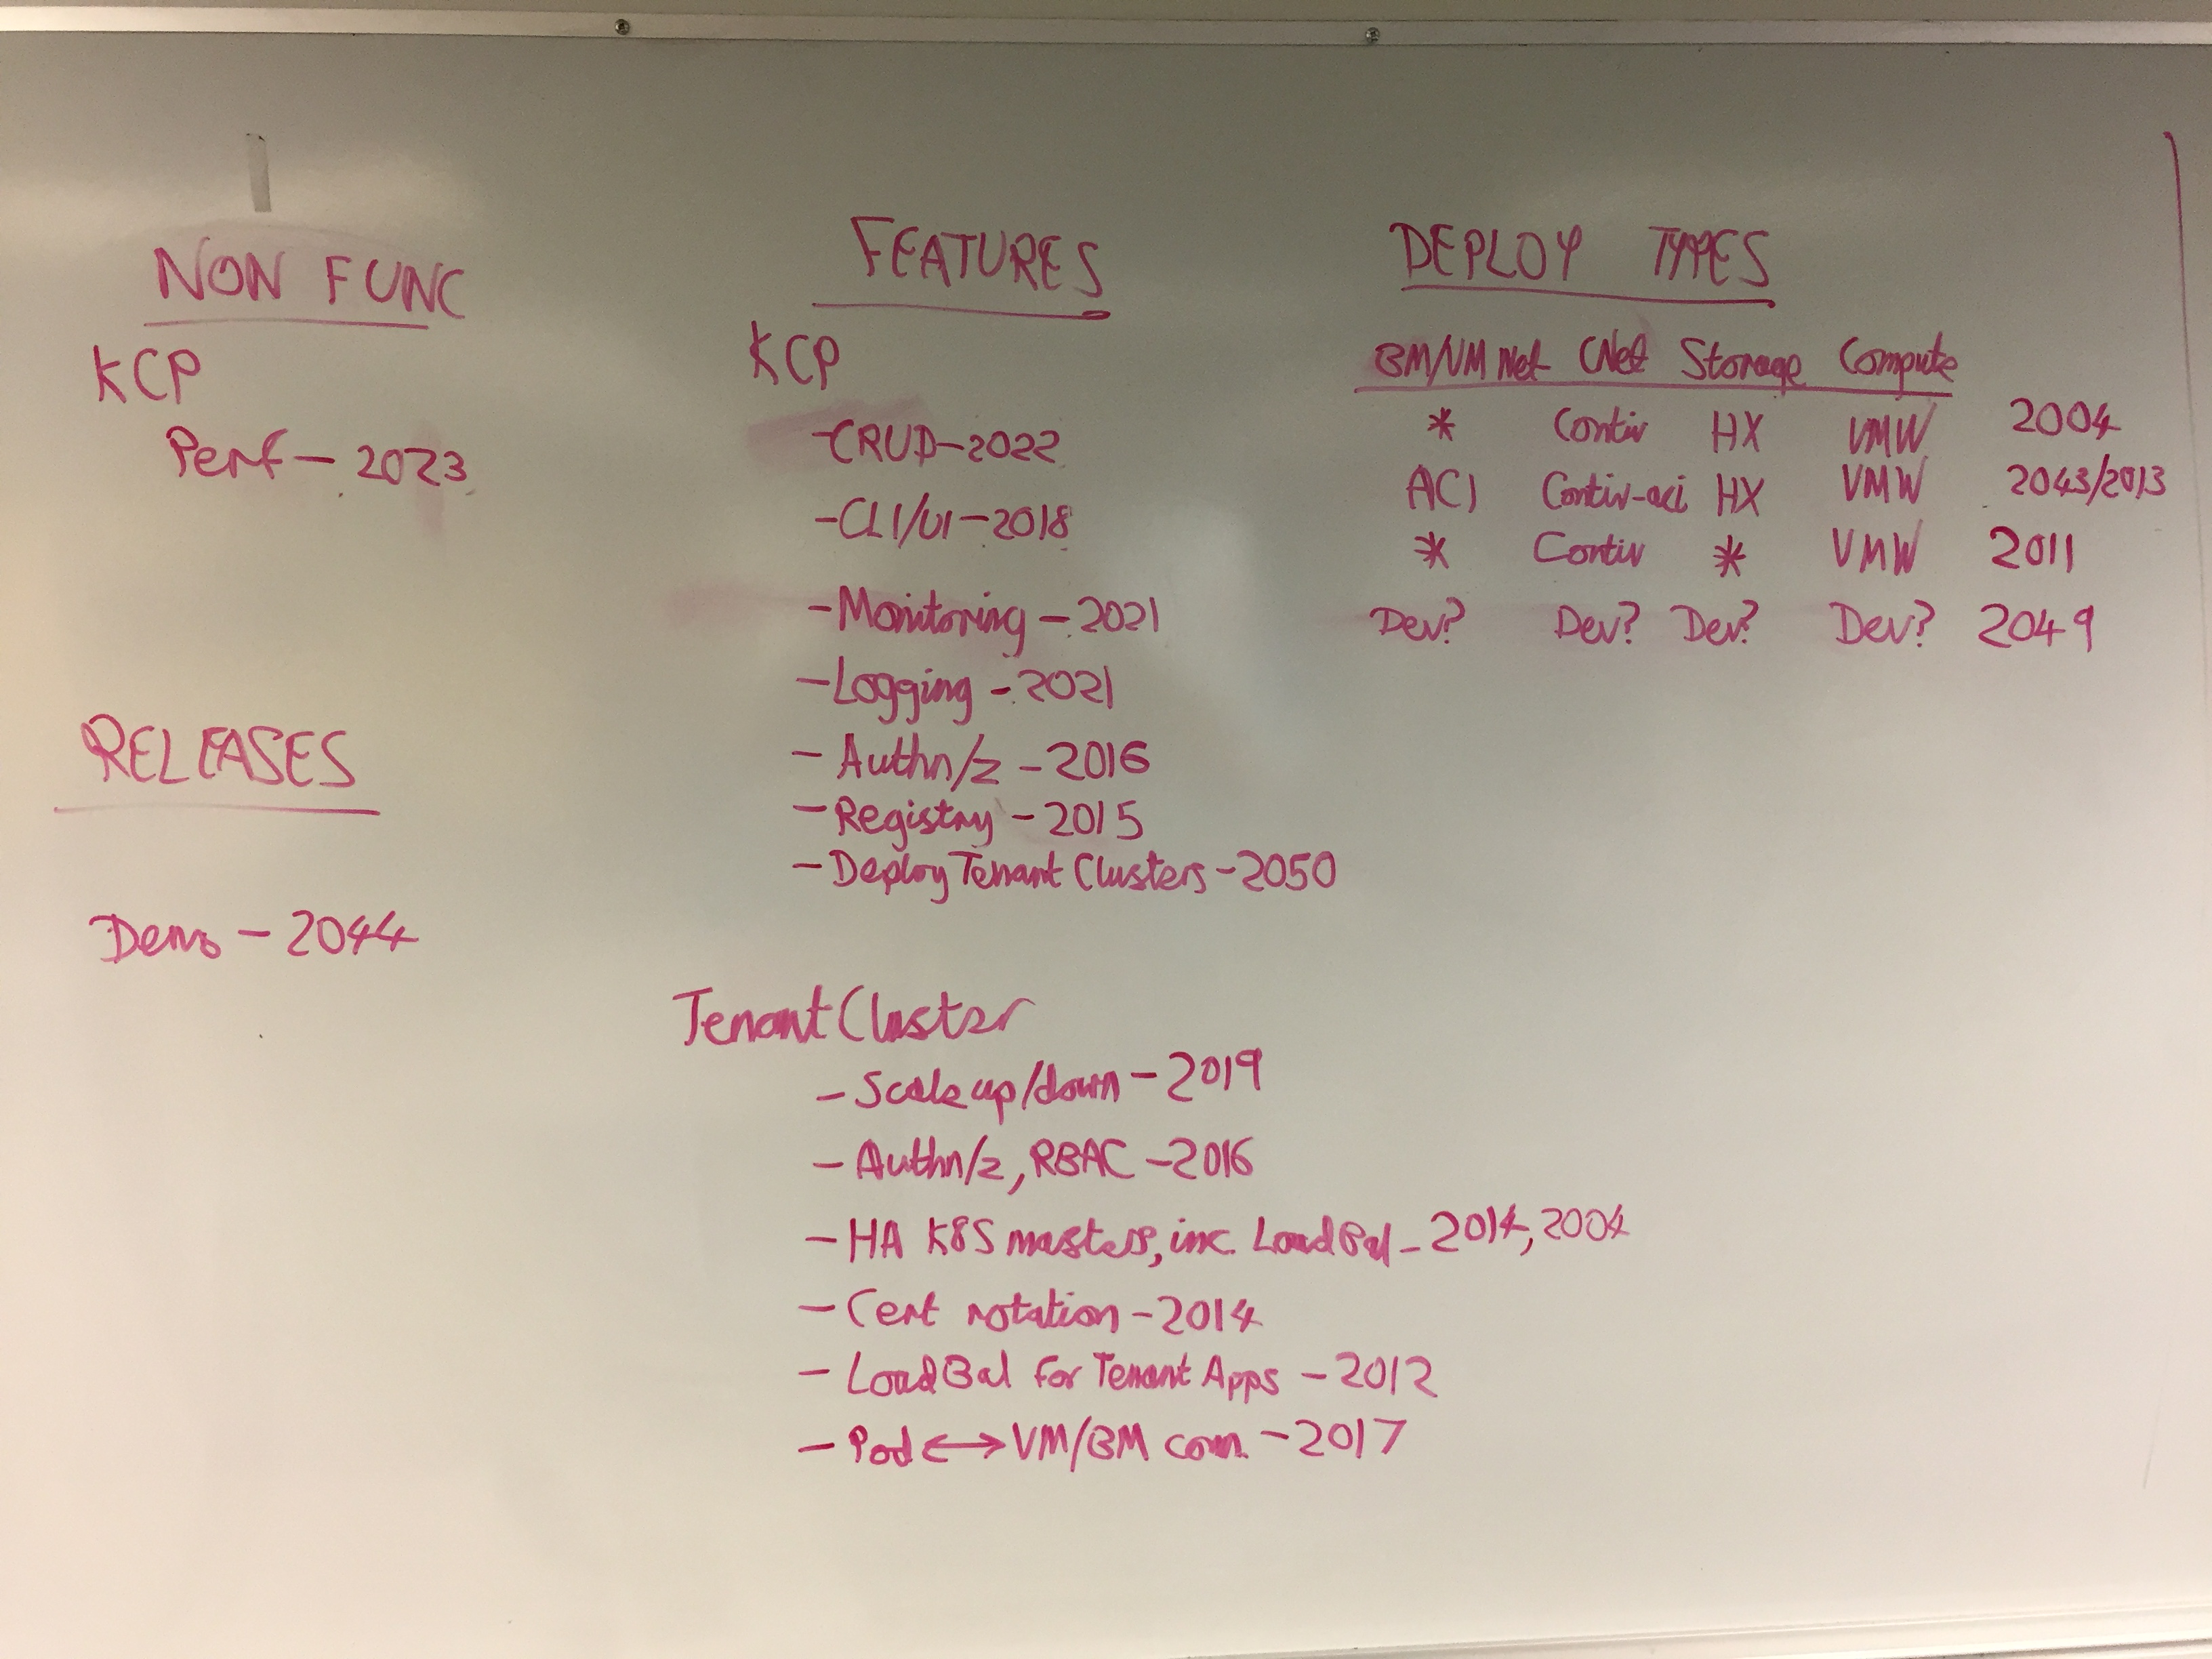 NON FUNC
KCP
Perf - 2023
RELEASES
Demo - 2044
FEATURES
KCP
- CRUD - 2022
- CLI/UI - 2018
- Monitoring - 2021
- Logging - 2021
- Authn/z - 2016
- Registry - 2015
- Deploy Tenant Clusters - 2050
Tenant Cluster
- Scale up/down - 2019
- Authn/z, RBAC - 2016
- HA K8S masters, inc. LoadBal - 2014, 2004
- Cert rotation - 2014
- LoadBal for Tenant Apps - 2012
- Pod <-> VM/BM com. - 2017
DEPLOY TYPES
BM/VM Net CNet Storage Compute
* Contiv HX VMW 2004
ACI Contiv-aci HX VMW 2043/2013
* Contiv * VMW 2011
Dev? Dev? Dev? Dev? 2049